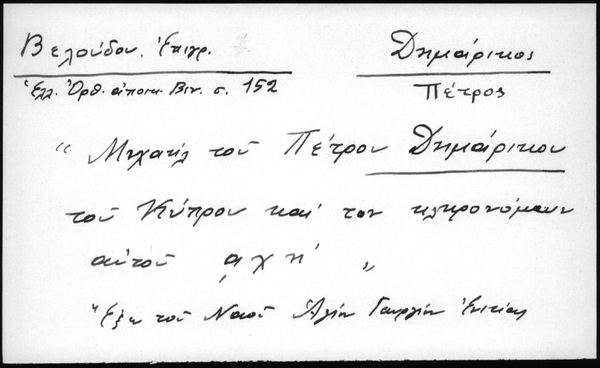 Βελούδου. Ἐπιγρ. Δημάρικος
Ἑλλ. Ὀρθ. ἀποικ. Βιν. σ. 152 Πέτρος
“ Μιχαὴλ τοῦ Πέτρου Δημάρικου
τοῦ Κύπρου καὶ τον κληρονόμων
αὐτοῦ ͵αχη′ „
Ἔξω τοῦ Ναοῦ Ἁγίου Γεωργίου Ἑνετίας